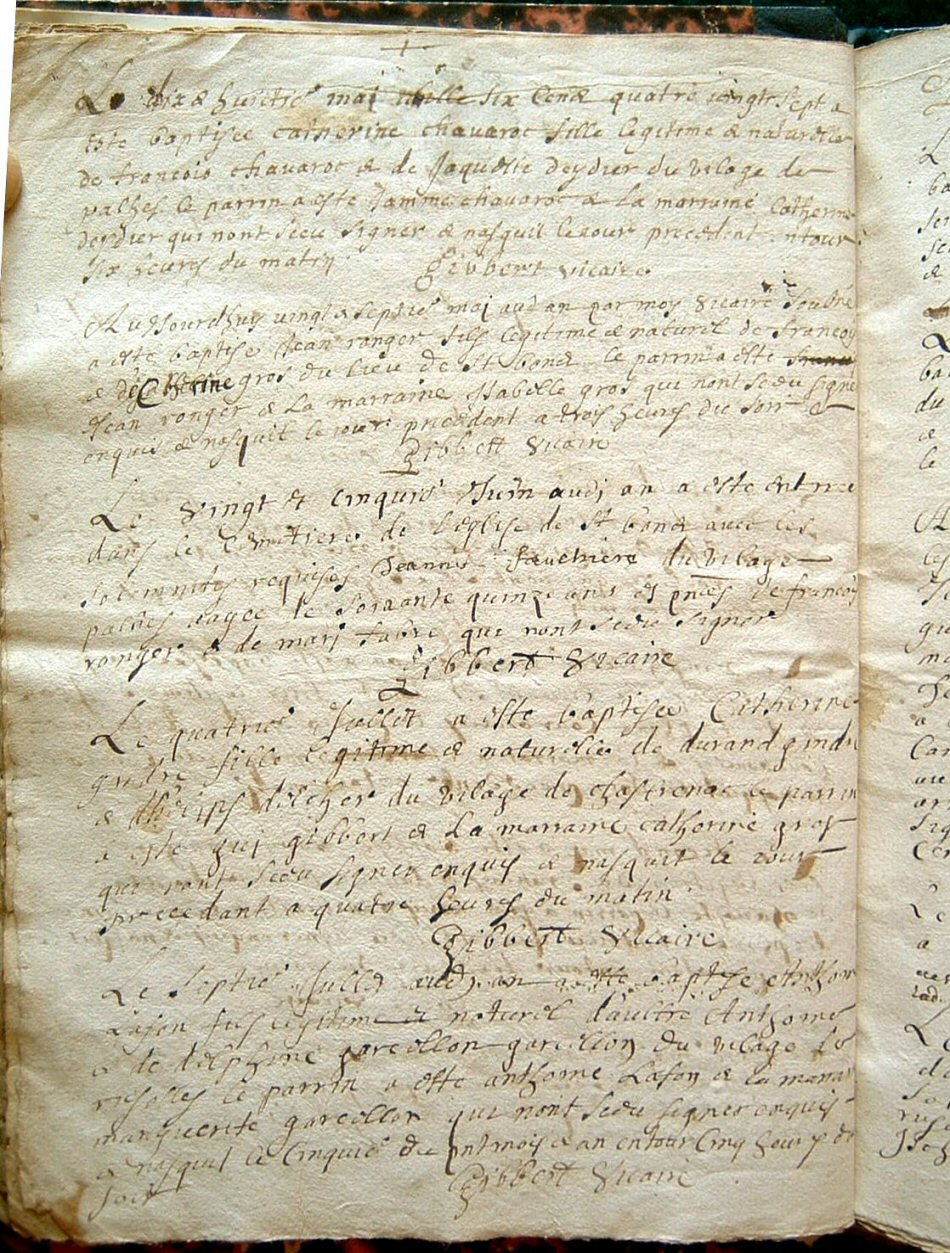 Le dix & huictie maj mille six cens quatre vingt sept a
este baptisee catherine chavaroc fille legitime & naturelle
de francois chavaroc & de Jaquette deydier du vilage de
palhes le parrin a este Jamme chavaroc & La marraine Catherine
deydier qui nont sceu signer & nasquit le jour precedent entour
six heures du matin Gibbert vicaire
Aujourdhuy vingt & septie maj aud an par moy vicaire soubne
a este baptise Jean ranger fils legitime & naturel de francoy
& de Catherine gros du lieu de St bond le parrin a este
Jean ranger & La marraine Isabelle gros qui nont sceu signe
enquis & nasquit le jour precedent a trois heures du soir
Gibbert vicaire
Le vingt et cinquie Juin audj an a este entree
dans le Cemetiere de leglise de St bond avec les
solemnites requises Jeanne du vilage
palhes aagee de soixante quinze ans es pnces de francoy
ranger & de marj fabre qui nont sceu signer
Gibbert vicaire
Le quatrie Juillet a este baptisee Catherine
fille legitime & naturelle de durand
& du vilage de chastrenac le parrin
a este guj gibbert & La marraine catherine gros
qui nont sceu signer enquis & nasquit le jour
precedant a quatre heures du matin
Gibbert vicaire
Le septie Juillet audj an a este baptise Anthoine
Lafon fils legitime & naturel daultre Anthoine
& de delphine garcillon garcillon du vilage de
le parrin a este anthoine Lafon & la marrai
marguerite garcillon qui nont sceu signer enquis
& nasquit le cinquie du pnt mois & an entour Cinq heures du
soir Gibbert vicaire